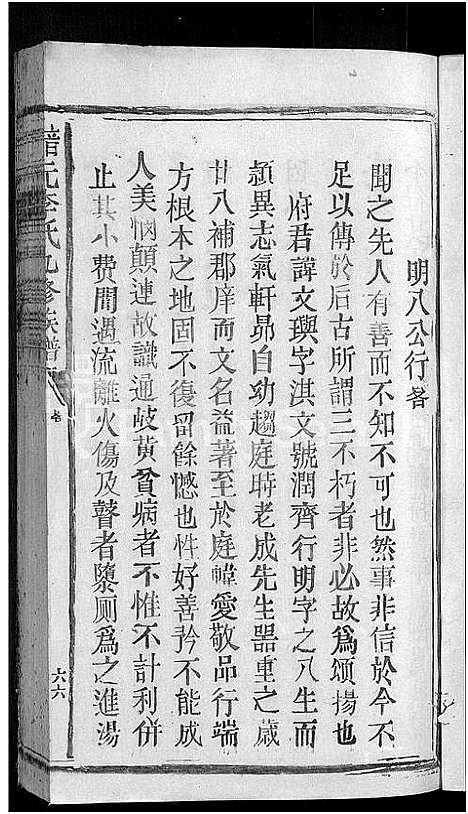 明八公行畧
聞之先人有善而不知不可也然事非信於今不
足以傳於后古所謂三不朽者非必故爲頌揚也
府君諱文璵字淇文號潤齊行明字之八生而
頴異志氣軒昂自功趨庭時老成先生器重之歲
廿八補郡庠而文名益著至於庭幃愛敬品行端
方根本之地固不復留餘憾也性好善矜不能成
人美憫顛連故識通岐黃貧病者不惟不計利併
止其小費間遇流離火傷及瞽者墮厠爲之進湯
李氏九修族譜
六六